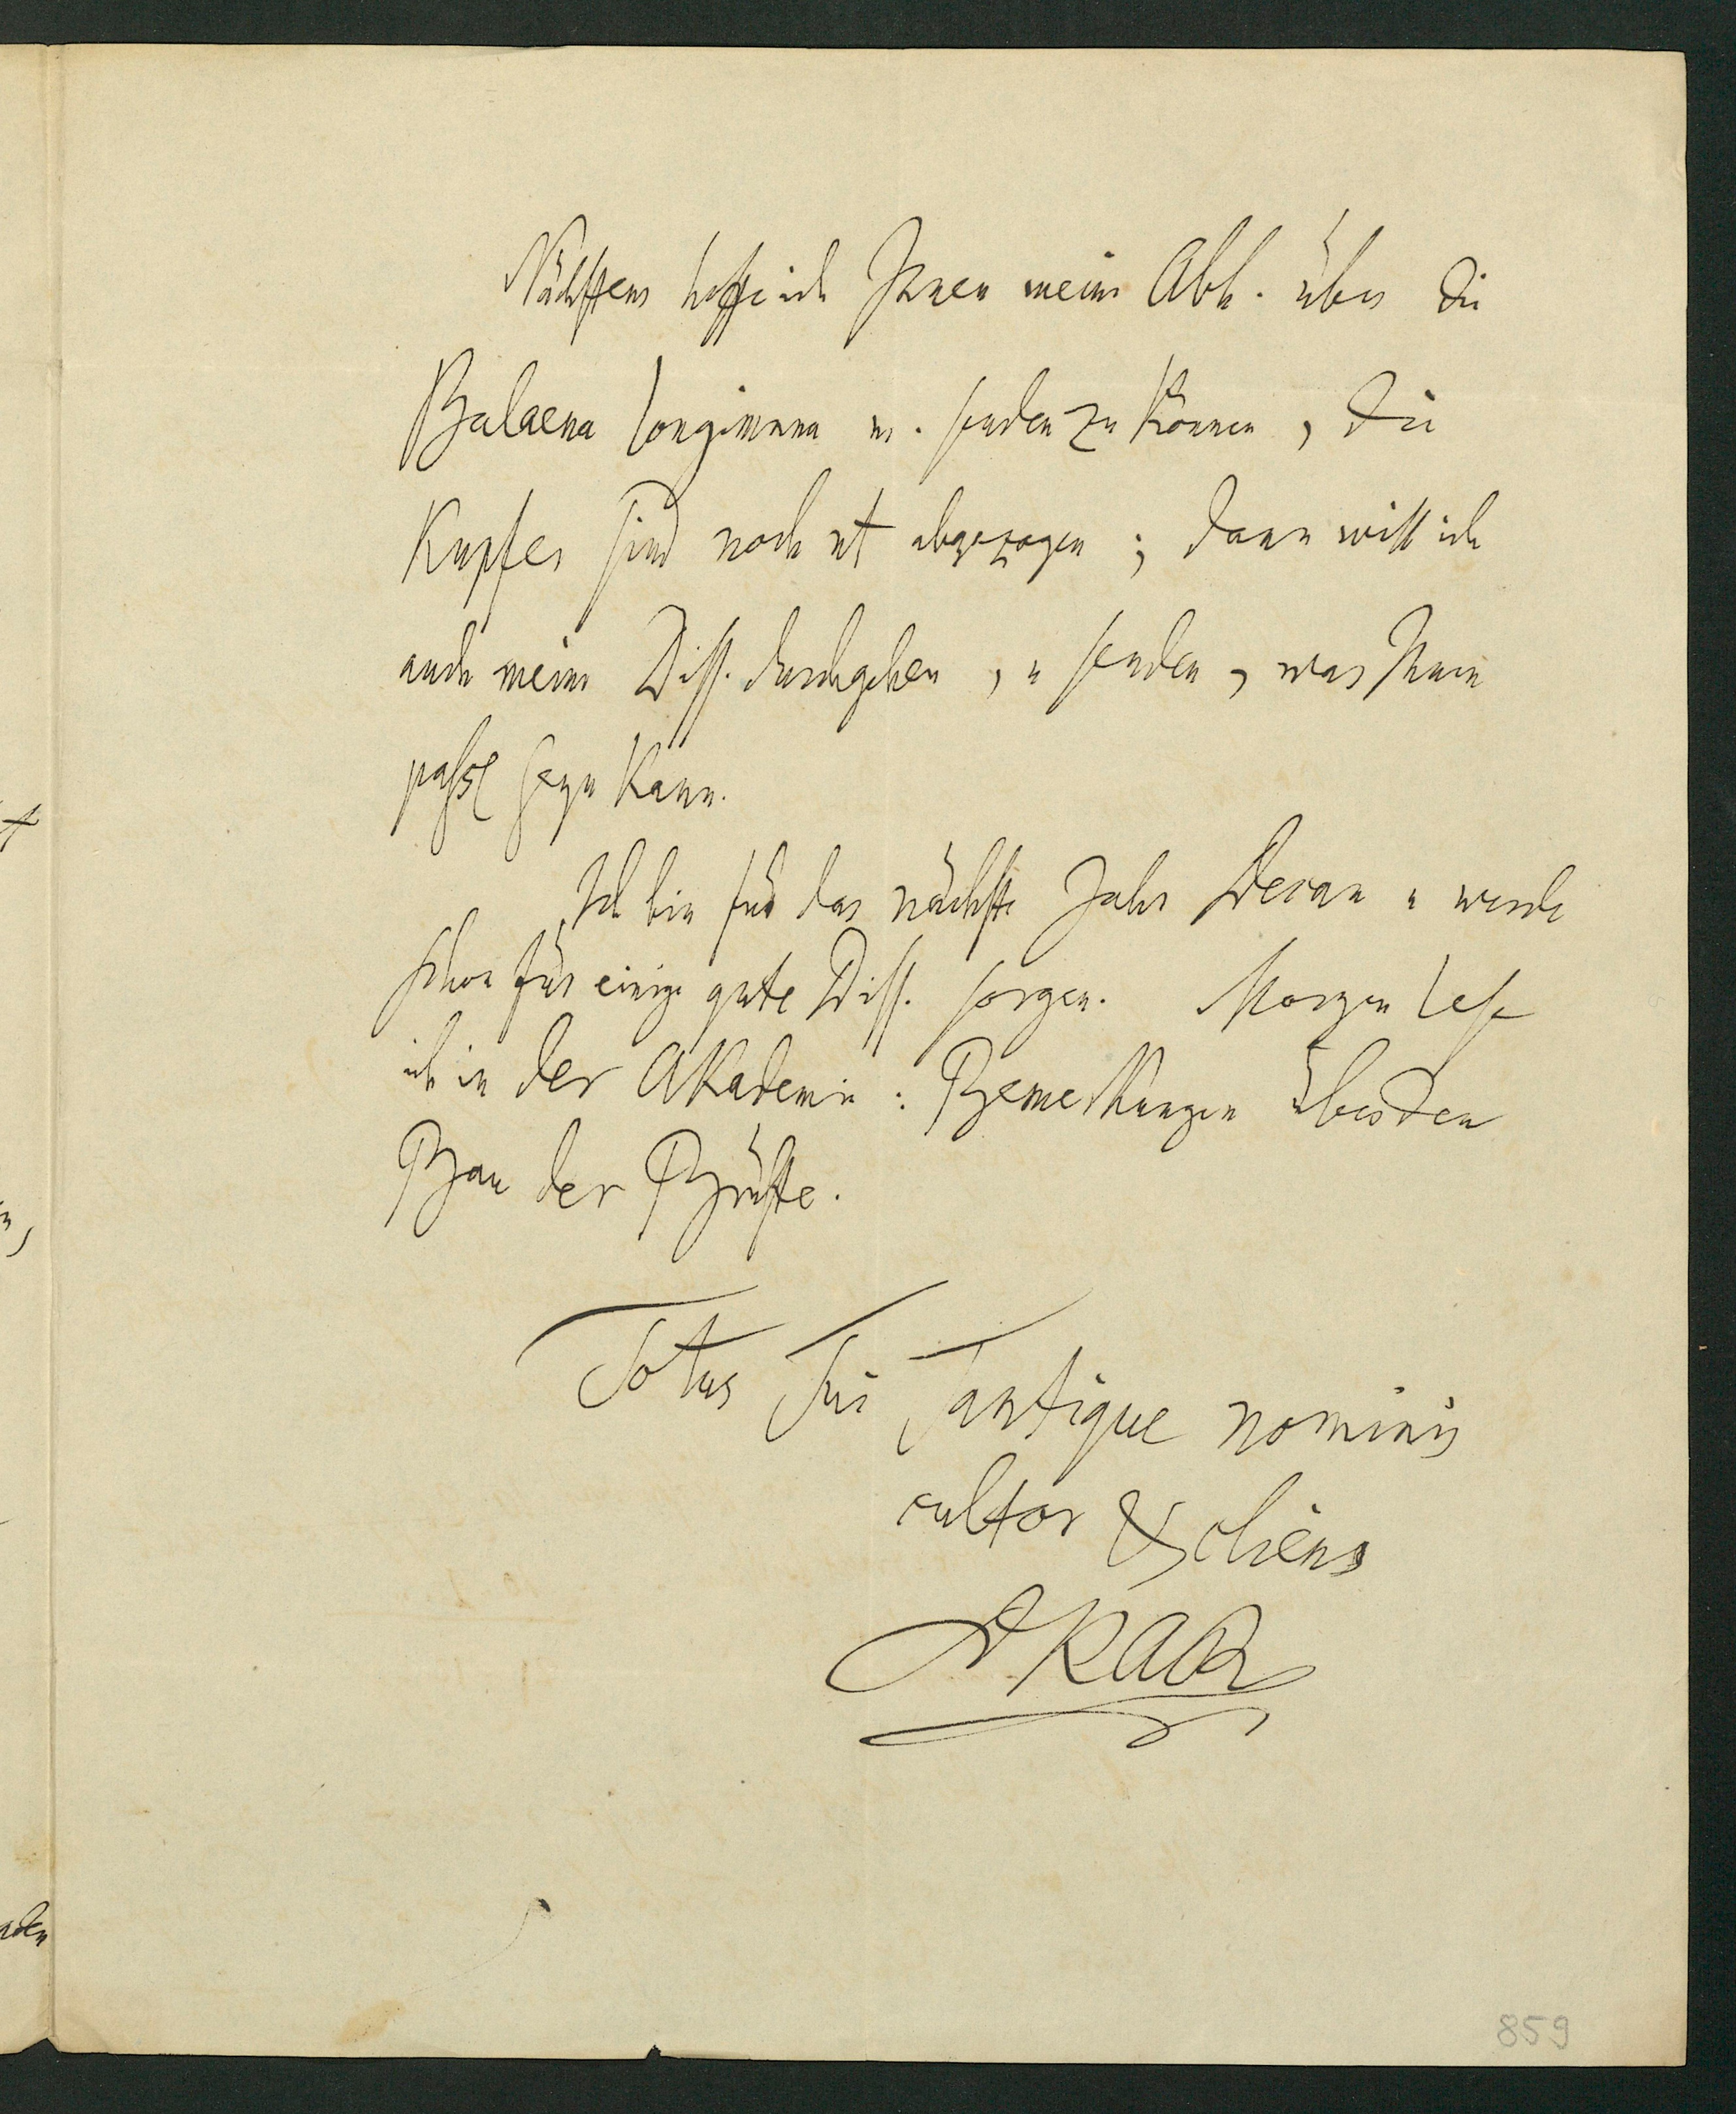 Nächstens hoffe ich Ihnen meine Abh. über die
Balaena longimana m. senden zu können, die
Kupfer sind noch nt abgezogen; dann will ich
auch meine Diss. durchgehen, u senden, was Ihnen
seyn kann.
Ich bin für das nächste Jahr Decan u werde
schon für einige gute Diss. sorgen. Morgen lese
ich in der Akademie: Bemerkungen über den
Bau der Brüste.
Totus Tui Tantique nominis
cultor & cliens
859